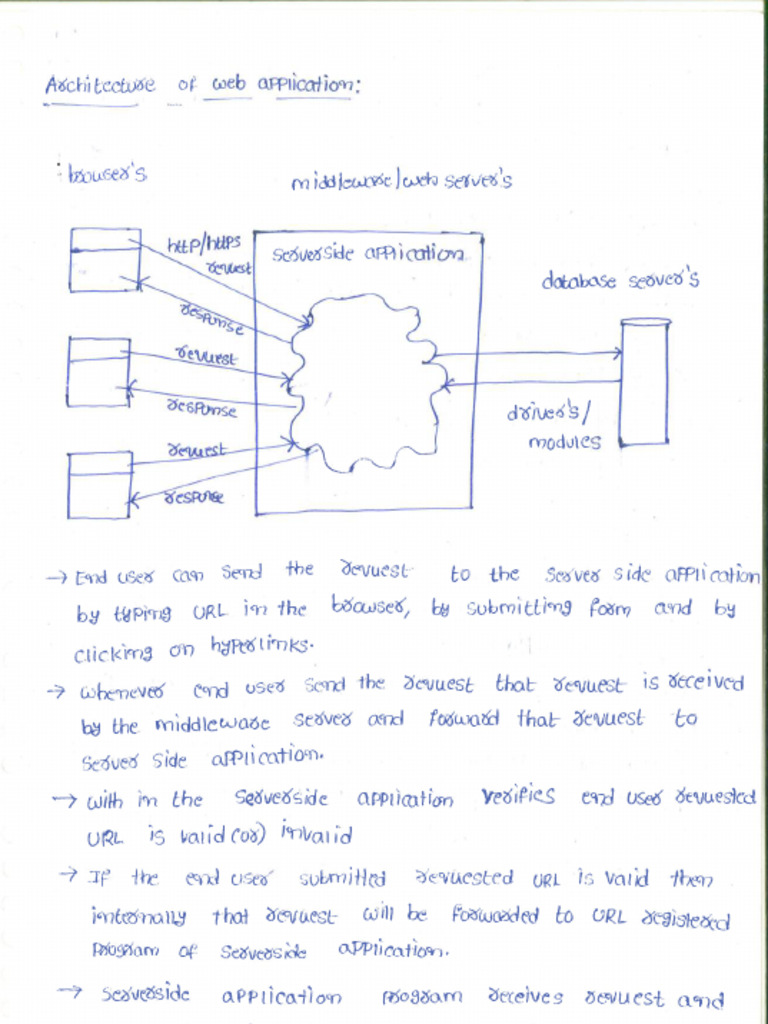 Architecture of web application:
browser's
middleware/web server's
http/https
request
serverside application
database server's
response
request
response
driver's/
modules
request
response
→ End user can send the request to the server side application
by typing URL in the browser, by submitting form and by
clicking on hyperlinks.
→ whenever end user send the request that request is received
by the middleware server and forward that request to
server side application.
→ with in the serverside application verifies end user requested
URL is valid (or) invalid
→ If the end user submitted requested URL is valid then
internally that request will be forwarded to URL registered
program of serverside application.
→ serverside application program receives request and